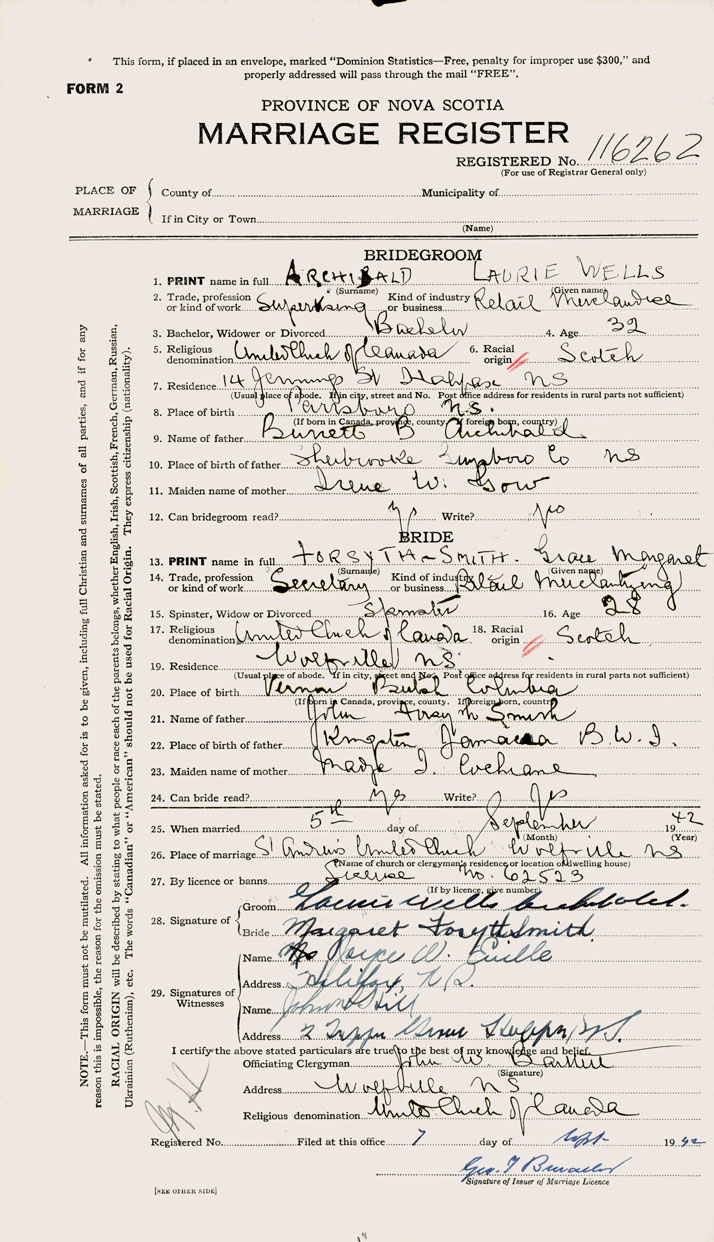 This form, if placed in an envelope, marked "Dominion Statistics—Free, penalty for improper use $300," and
properly addressed will pass through the mail "FREE".
FORM 2
PROVINCE OF NOVA SCOTIA
MARRIAGE REGISTER
REGISTERED No. 116262
(For use of Registrar General only)
PLACE OF MARRIAGE
County of Municipality of
If in City or Town
(Name)
BRIDEGROOM
1. PRINT name in full ARCHIBALD LAURIE WELLS
(Surname) (Given name)
2. Trade, profession or kind of work Supervising Kind of industry or business Retail Merchandise
3. Bachelor, Widower or Divorced Bachelor 4. Age 32
5. Religious denomination United Church of Canada 6. Racial origin Scotch
7. Residence 14 Jennings St Halifax NS
(Usual place of abode. If in city, street and No. Post office address for residents in rural parts not sufficient)
8. Place of birth Parrsboro N.S.
(If born in Canada, province, county. If foreign born, country)
9. Name of father Burnett B Archibald
10. Place of birth of father Sherbrooke Co NS
11. Maiden name of mother Irene W. Gow
12. Can bridegroom read? yes Write? yes
BRIDE
13. PRINT name in full FORSYTH-SMITH. Grace Margaret
(Surname) (Given name)
14. Trade, profession or kind of work Secretary Kind of industry or business Retail Merchantizing
15. Spinster, Widow or Divorced Spinster 16. Age 28
17. Religious denomination United Church of Canada 18. Racial origin Scotch
19. Residence Wolfville NS
(Usual place of abode. If in city, street and No. Post office address for residents in rural parts not sufficient)
20. Place of birth Vernon British Columbia
(If born in Canada, province, county. If foreign born, country)
21. Name of father John Forsyth Smith
22. Place of birth of father Kingston Jamaica B.W.I.
23. Maiden name of mother Madge I. Cochrane
24. Can bride read? Yes Write? Yes
25. When married 5th day of September 1942
(Month) (Year)
26. Place of marriage St Andrews United Church Wolfville NS
(Name of church or clergyman's residence or location of dwelling house)
27. By licence or banns License No. 62523
(If by licence, give number)
28. Signature of
Groom Laurie Wells Archibald.
Bride Margaret Forsyth Smith
29. Signatures of Witnesses
Name Joyce W.
Address Halifax, N.S.
Name John Hill
Address 2 N.S.
I certify the above stated particulars are true to the best of my knowledge and belief.
Officiating Clergyman John W.
(Signature)
Address Wolfville NS.
Religious denomination United Church of Canada
Registered No. Filed at this office 7 day of Sept 1942
Geo. T
Signature of Issuer of Marriage Licence
[SEE OTHER SIDE]
NOTE.—This form must not be mutilated. All information asked for is to be given, including full Christian and surnames of all parties, and if for any
reason this is impossible, the reason for the omission must be stated.
RACIAL ORIGIN will be described by stating to what people or race each of the parents belongs, whether English, Irish, Scottish, French, German, Russian,
Ukrainian (Ruthenian), etc. The words "Canadian" or "American" should not be used for Racial Origin. They express citizenship (nationality).